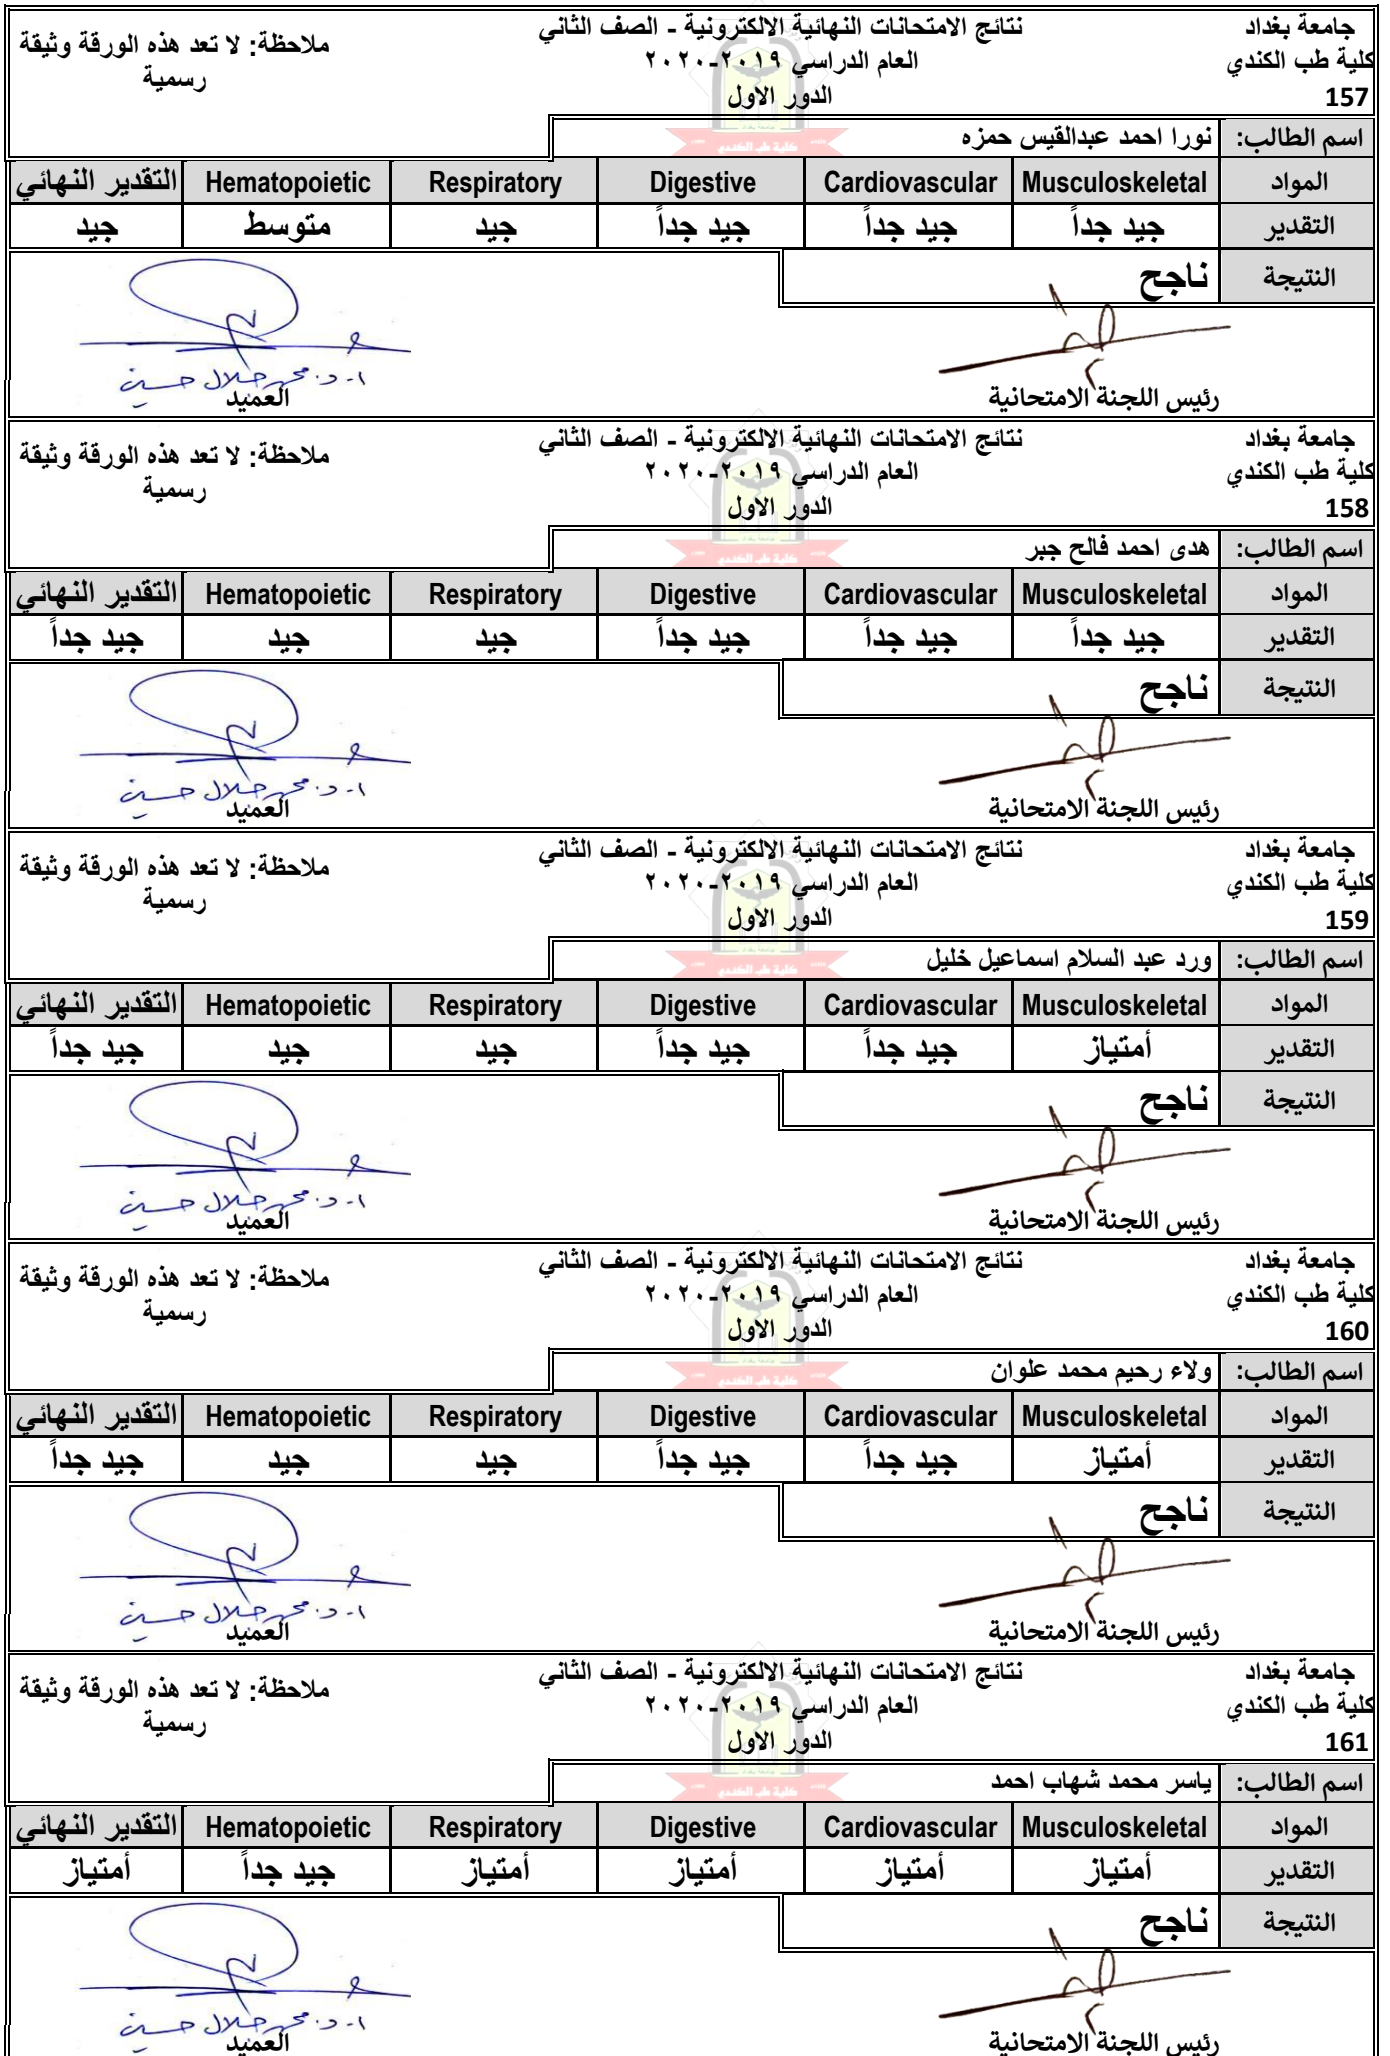 جامعة بغداد
كلية طب الكندي
157
نتائج الامتحانات النهائية الالكترونية - الصف الثاني
العام الدراسي ٢٠١٩-٢٠٢٠
الدور الاول
ملاحظة: لا تعد هذه الورقة وثيقة
رسمية
اسم الطالب: نورا احمد عبدالقيس حمزه
المواد Musculoskeletal Cardiovascular Digestive Respiratory Hematopoietic التقدير النهائي
التقدير جيد جداً جيد جداً جيد جداً جيد متوسط جيد
النتيجة ناجح
رئيس اللجنة الامتحانية
العميد
جامعة بغداد
كلية طب الكندي
158
نتائج الامتحانات النهائية الالكترونية - الصف الثاني
العام الدراسي ٢٠١٩-٢٠٢٠
الدور الاول
ملاحظة: لا تعد هذه الورقة وثيقة
رسمية
اسم الطالب: هدى احمد فالح جبر
المواد Musculoskeletal Cardiovascular Digestive Respiratory Hematopoietic التقدير النهائي
التقدير جيد جداً جيد جداً جيد جداً جيد جيد جيد جداً
النتيجة ناجح
رئيس اللجنة الامتحانية
العميد
جامعة بغداد
كلية طب الكندي
159
نتائج الامتحانات النهائية الالكترونية - الصف الثاني
العام الدراسي ٢٠١٩-٢٠٢٠
الدور الاول
ملاحظة: لا تعد هذه الورقة وثيقة
رسمية
اسم الطالب: ورد عبد السلام اسماعيل خليل
المواد Musculoskeletal Cardiovascular Digestive Respiratory Hematopoietic التقدير النهائي
التقدير أمتياز جيد جداً جيد جداً جيد جيد جيد جداً
النتيجة ناجح
رئيس اللجنة الامتحانية
العميد
جامعة بغداد
كلية طب الكندي
160
نتائج الامتحانات النهائية الالكترونية - الصف الثاني
العام الدراسي ٢٠١٩-٢٠٢٠
الدور الاول
ملاحظة: لا تعد هذه الورقة وثيقة
رسمية
اسم الطالب: ولاء رحيم محمد علوان
المواد Musculoskeletal Cardiovascular Digestive Respiratory Hematopoietic التقدير النهائي
التقدير أمتياز جيد جداً جيد جداً جيد جيد جيد جداً
النتيجة ناجح
رئيس اللجنة الامتحانية
العميد
جامعة بغداد
كلية طب الكندي
161
نتائج الامتحانات النهائية الالكترونية - الصف الثاني
العام الدراسي ٢٠١٩-٢٠٢٠
الدور الاول
ملاحظة: لا تعد هذه الورقة وثيقة
رسمية
اسم الطالب: ياسر محمد شهاب احمد
المواد Musculoskeletal Cardiovascular Digestive Respiratory Hematopoietic التقدير النهائي
التقدير أمتياز أمتياز أمتياز أمتياز جيد جداً أمتياز
النتيجة ناجح
رئيس اللجنة الامتحانية
العميد